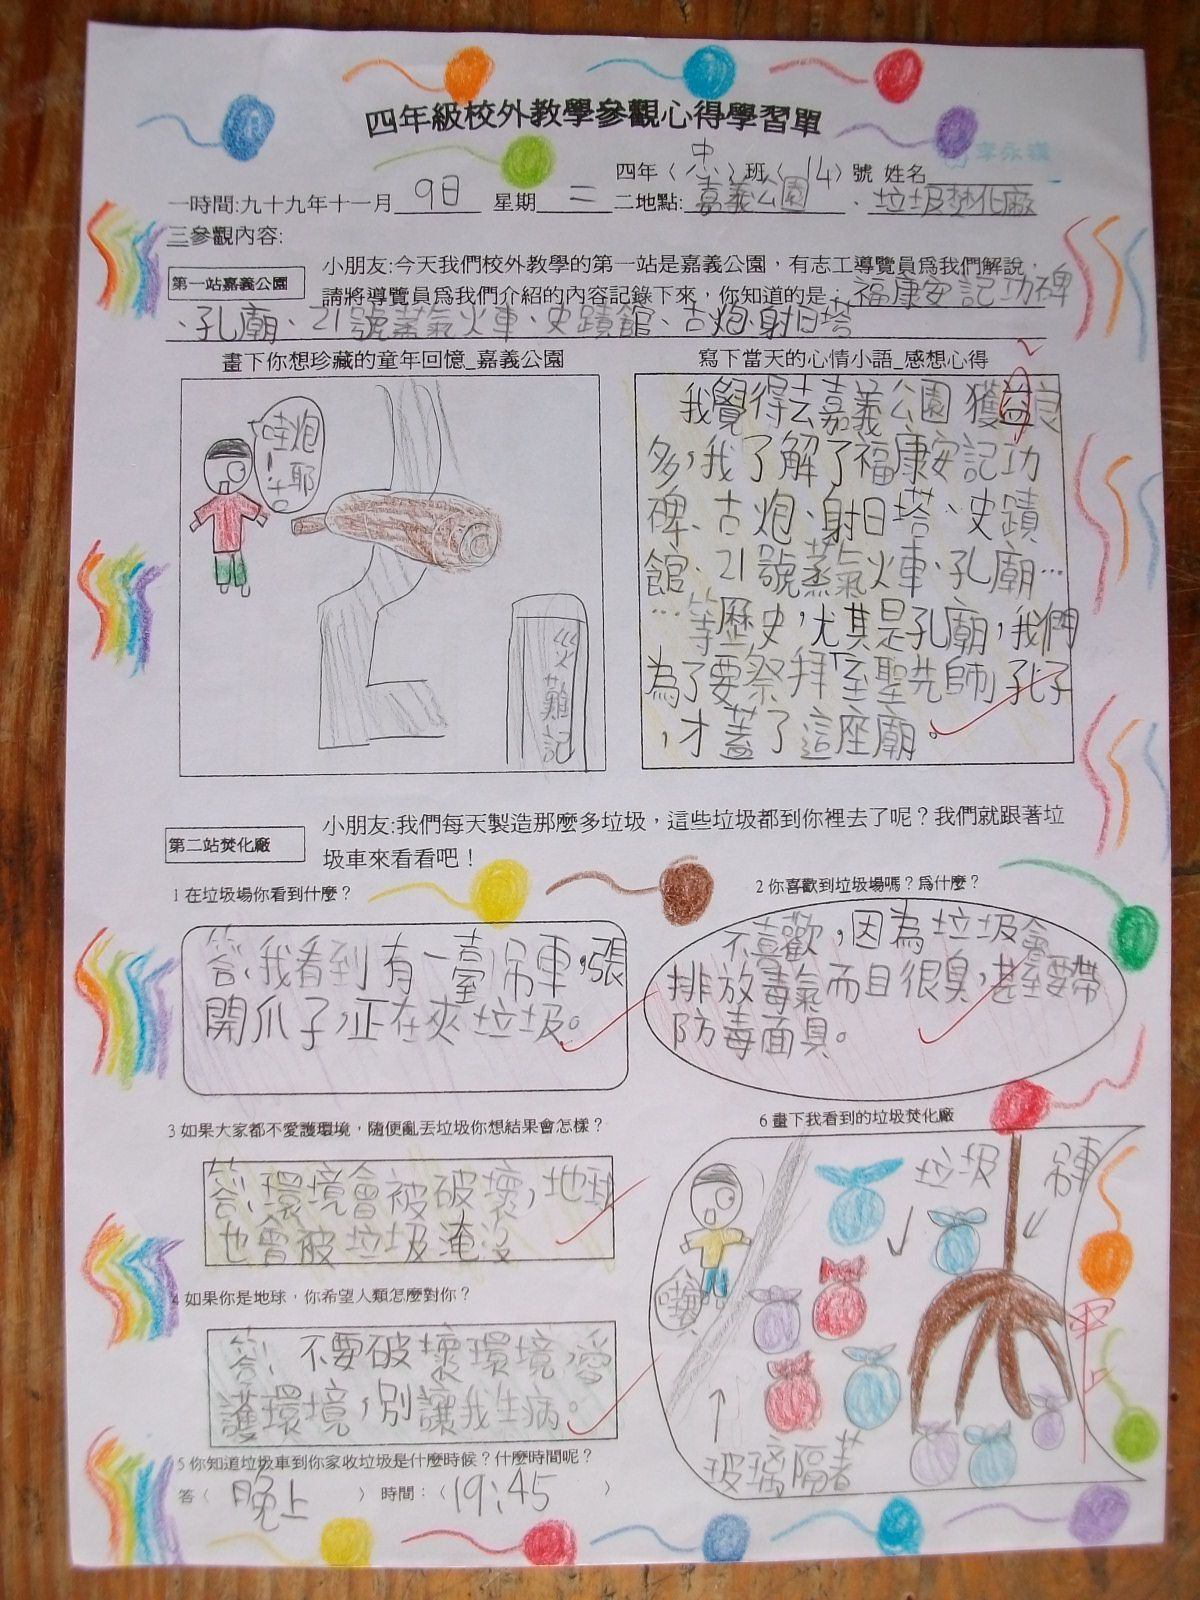 四年級校外教學參觀心得學習單
四年〈忠〉班〈14〉號 姓名
中
一時間:九十九年十一月9日 星期二 二地點:嘉義公園、垃圾焚化廠
三參觀內容:
第一站嘉義公園
小朋友:今天我們校外教學的第一站是嘉義公園，有志工導覽員為我們解說，
請將導覽員為我們介紹的內容記錄下來，你知道的是：福康安記功碑
、孔廟、21號蒸氣火車、史蹟館、古炮、射日塔
畫下你想珍藏的童年回憶_嘉義公園
哇！古炮耶
災難記
寫下當天的心情小語_感想心得
我覺得去嘉義公園獲益良
多，我了解了福康安記功
碑、古炮、射日塔、史蹟
館、21號蒸氣火車、孔廟…
…等歷史，尤其是孔廟，我們
為了要祭拜「至聖先師」孔子
，才蓋了這座廟。
第二站焚化廠
小朋友:我們每天製造那麼多垃圾，這些垃圾都到你裡去了呢？我們就跟著垃
圾車來看看吧！
1 在垃圾場你看到什麼？
答:我看到有一臺吊車，張
開爪子，正在夾垃圾。
2 你喜歡到垃圾場嗎？為什麼？
不喜歡，因為垃圾會
排放毒氣而且很臭，甚至要帶
防毒面具。
3 如果大家都不愛護環境，隨便亂丟垃圾你想結果會怎樣？
答:環境會被破壞，地球
也會被垃圾淹沒
4 如果你是地球，你希望人類怎麼對你？
答:不要破壞環境，愛
護環境，別讓我生病。
5 你知道垃圾車到你家收垃圾是什麼時候？什麼時間呢？
答〈晚上〉 時間：〈19:45〉
6 畫下我看到的垃圾焚化廠
垃圾
吊車
噗
玻璃隔著